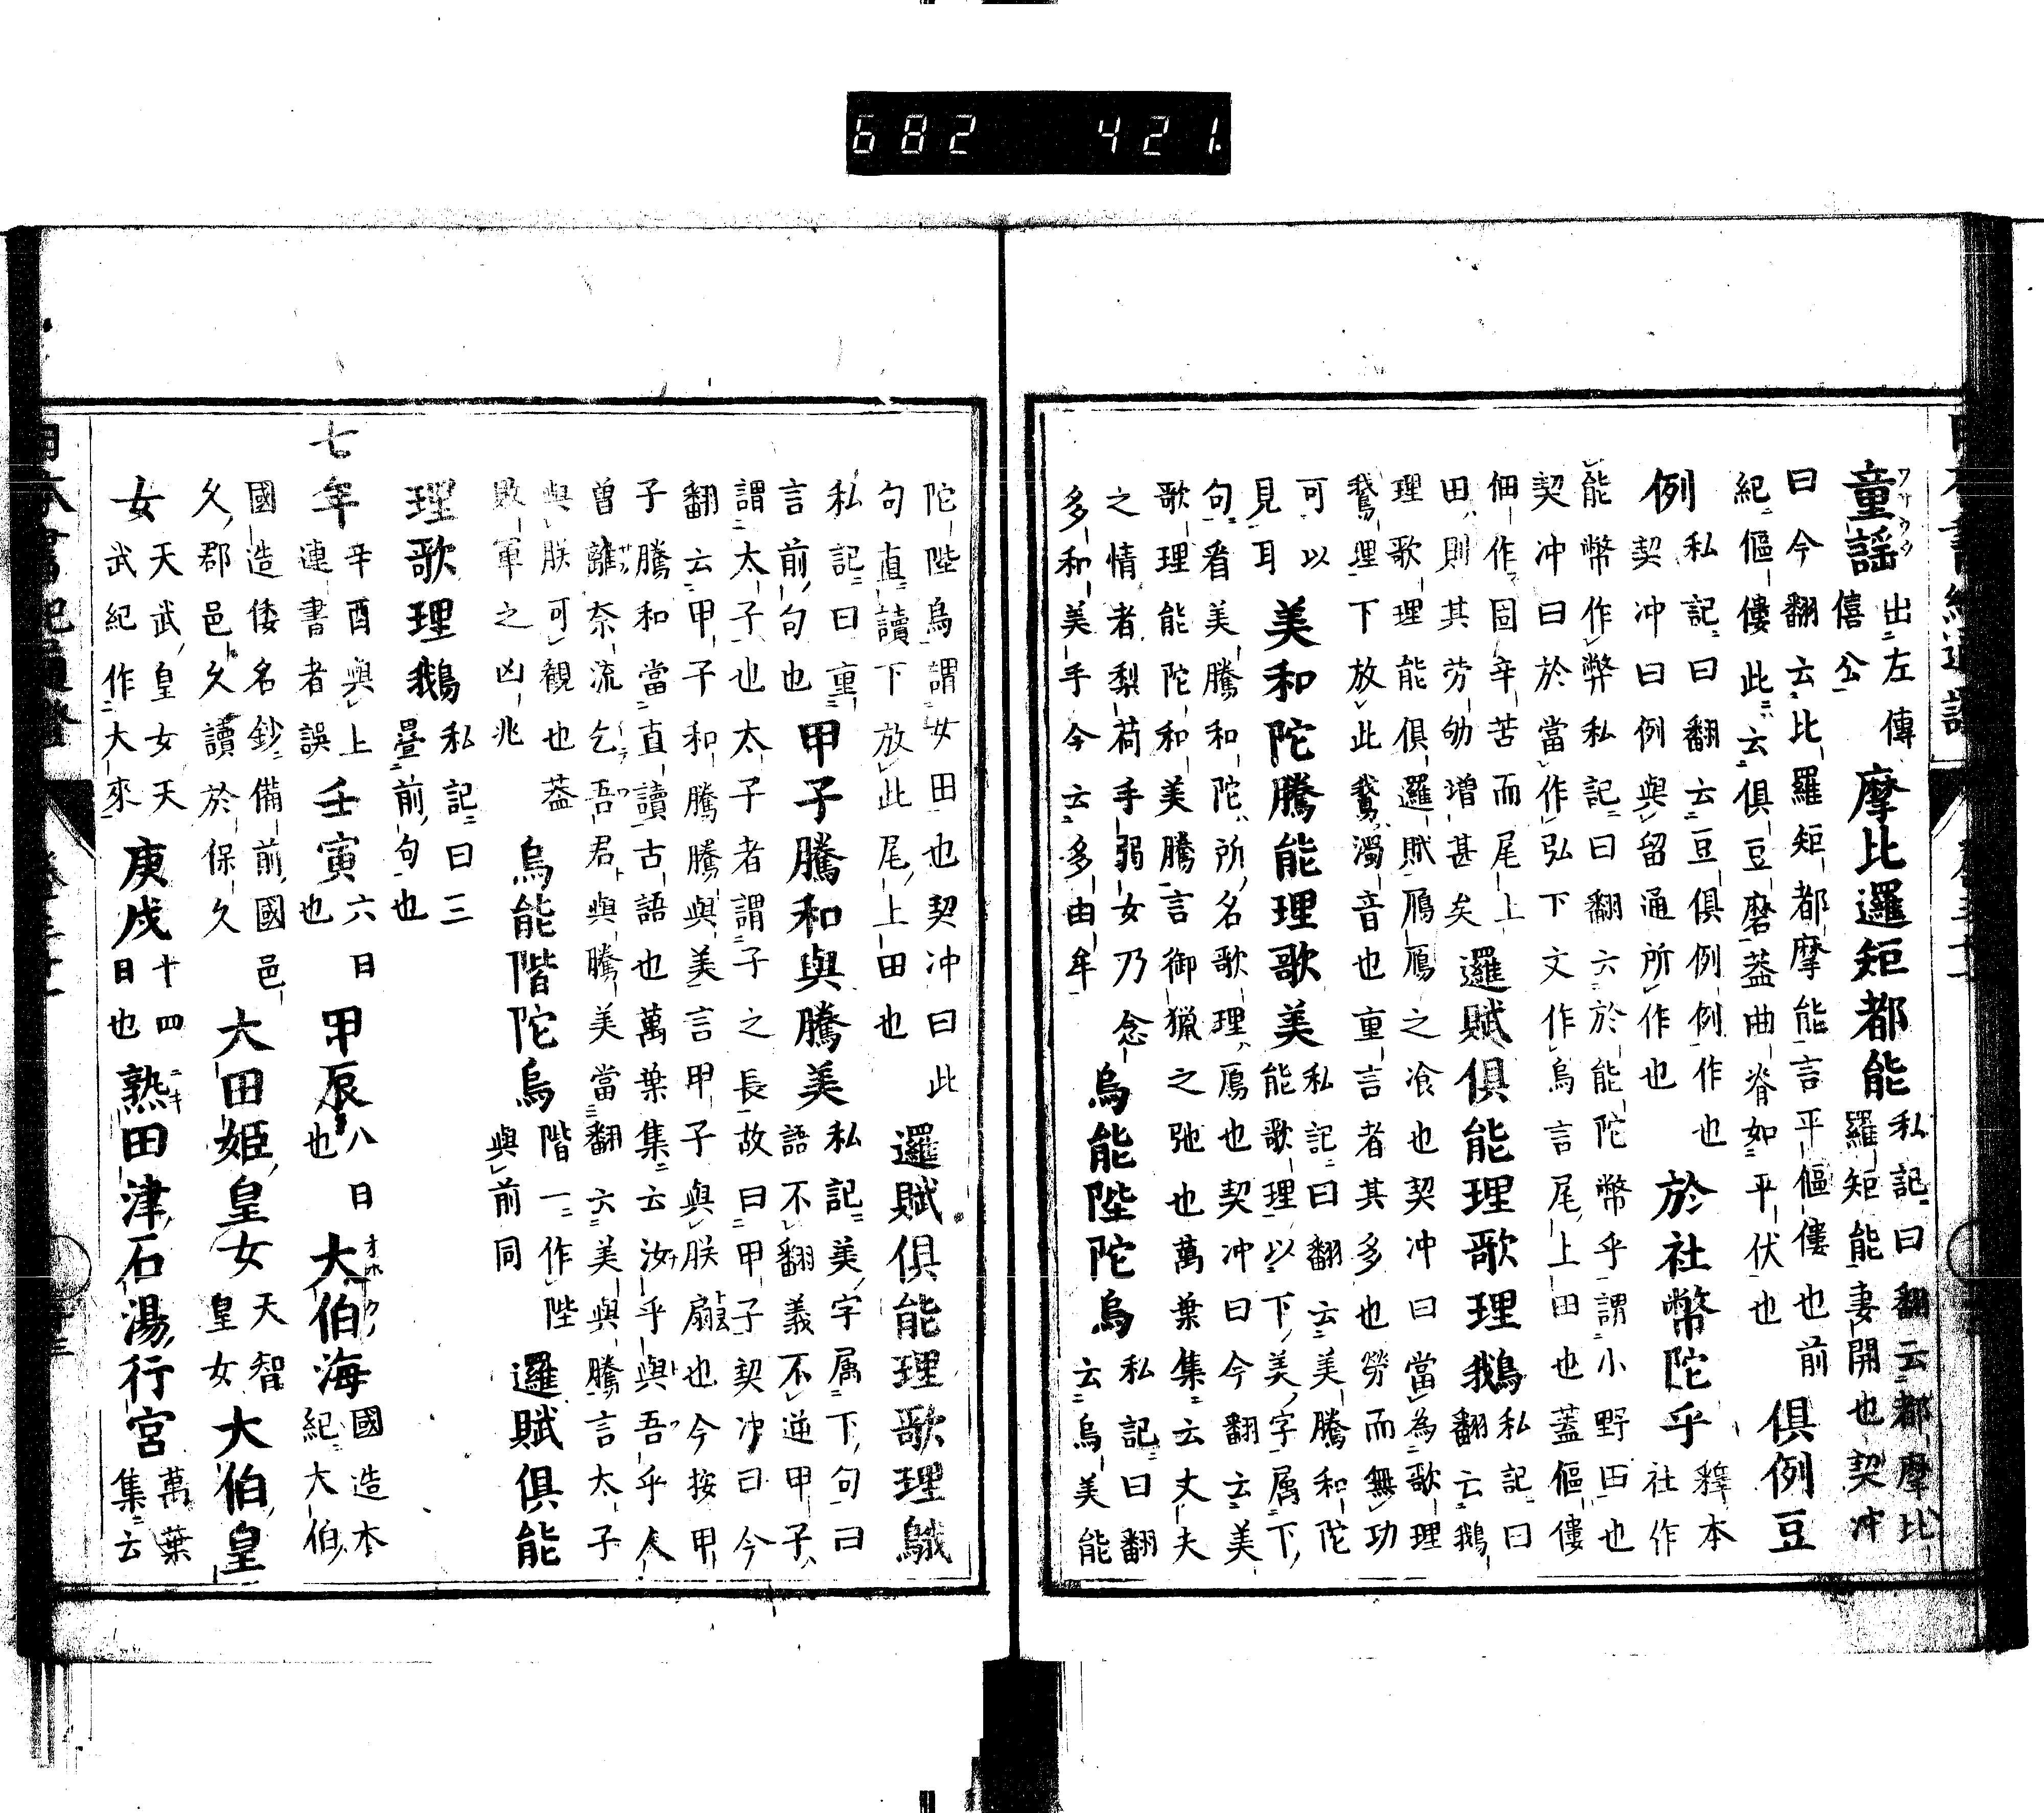 682 421.
童謡 出左傳僖公 摩比邏矩都能 私記曰翻云都摩比羅矩能妻開也契冲
曰今翻云比羅矩都摩能言平傴僂也前
紀傴僂此云俱豆磨蓋曲脊如平伏也 俱例豆
例 私記曰翻云豆俱例例作也契冲曰例與留通所作也 於社幣陀乎 釋本社作
能幣作弊私記曰翻云於能陀幣乎謂小野田也
契冲曰於當作弘下文作烏言尾上田也蓋傴僂
佃作固辛苦而尾上田則其劳劬增甚矣 邏賦俱能理歌理鵝 私記曰翻云鵝
理歌理能俱邏賦鴈鴈之飡也契冲曰當為歌理
鵝理下放此鵝濁音也重言者其多也勞而無功
可以見耳 美和陀騰能理歌美 私記曰翻云美騰和陀能歌理以下美字属下
句看美騰和陀所名歌理鴈也契冲曰今翻云美
歌理能陀和美騰言御獵之弛也萬葉集云丈夫
之情者梨荷手弱女乃念多和美手今云多由牟 烏能陛陀烏 私記曰翻云烏美能
陀陛烏謂女田也契冲曰此句直讀下放此尾上田也 邏賦俱能理歌理鵝
私記曰重言前句也 甲子騰和與騰美 私記美字属下句曰語不翻義不逆甲子
謂太子也太子者謂子之長故曰甲子契冲曰今
翻云甲子和騰騰與美言甲子與朕扇也今按甲
子騰和當直讀古語也萬葉集云汝乎與吾乎人
曾離奈流乞吾君與騰美當翻云美與騰言太子
與朕可観也葢敗軍之凶兆 烏能階陀烏 階一作陛與前同 邏賦俱能
理歌理鵝 私記曰三疊前句也
七年 辛酉與上連書者誤 壬寅 六日也 甲辰 八日也 大伯海 國造本紀大伯
國造倭名鈔備前國邑久郡邑久讀於保久 大田姫皇女 天智皇女 大伯皇
女 天武皇女天武紀作大來 庚戌 十四日也 熟田津石湯行宮 萬葉集云